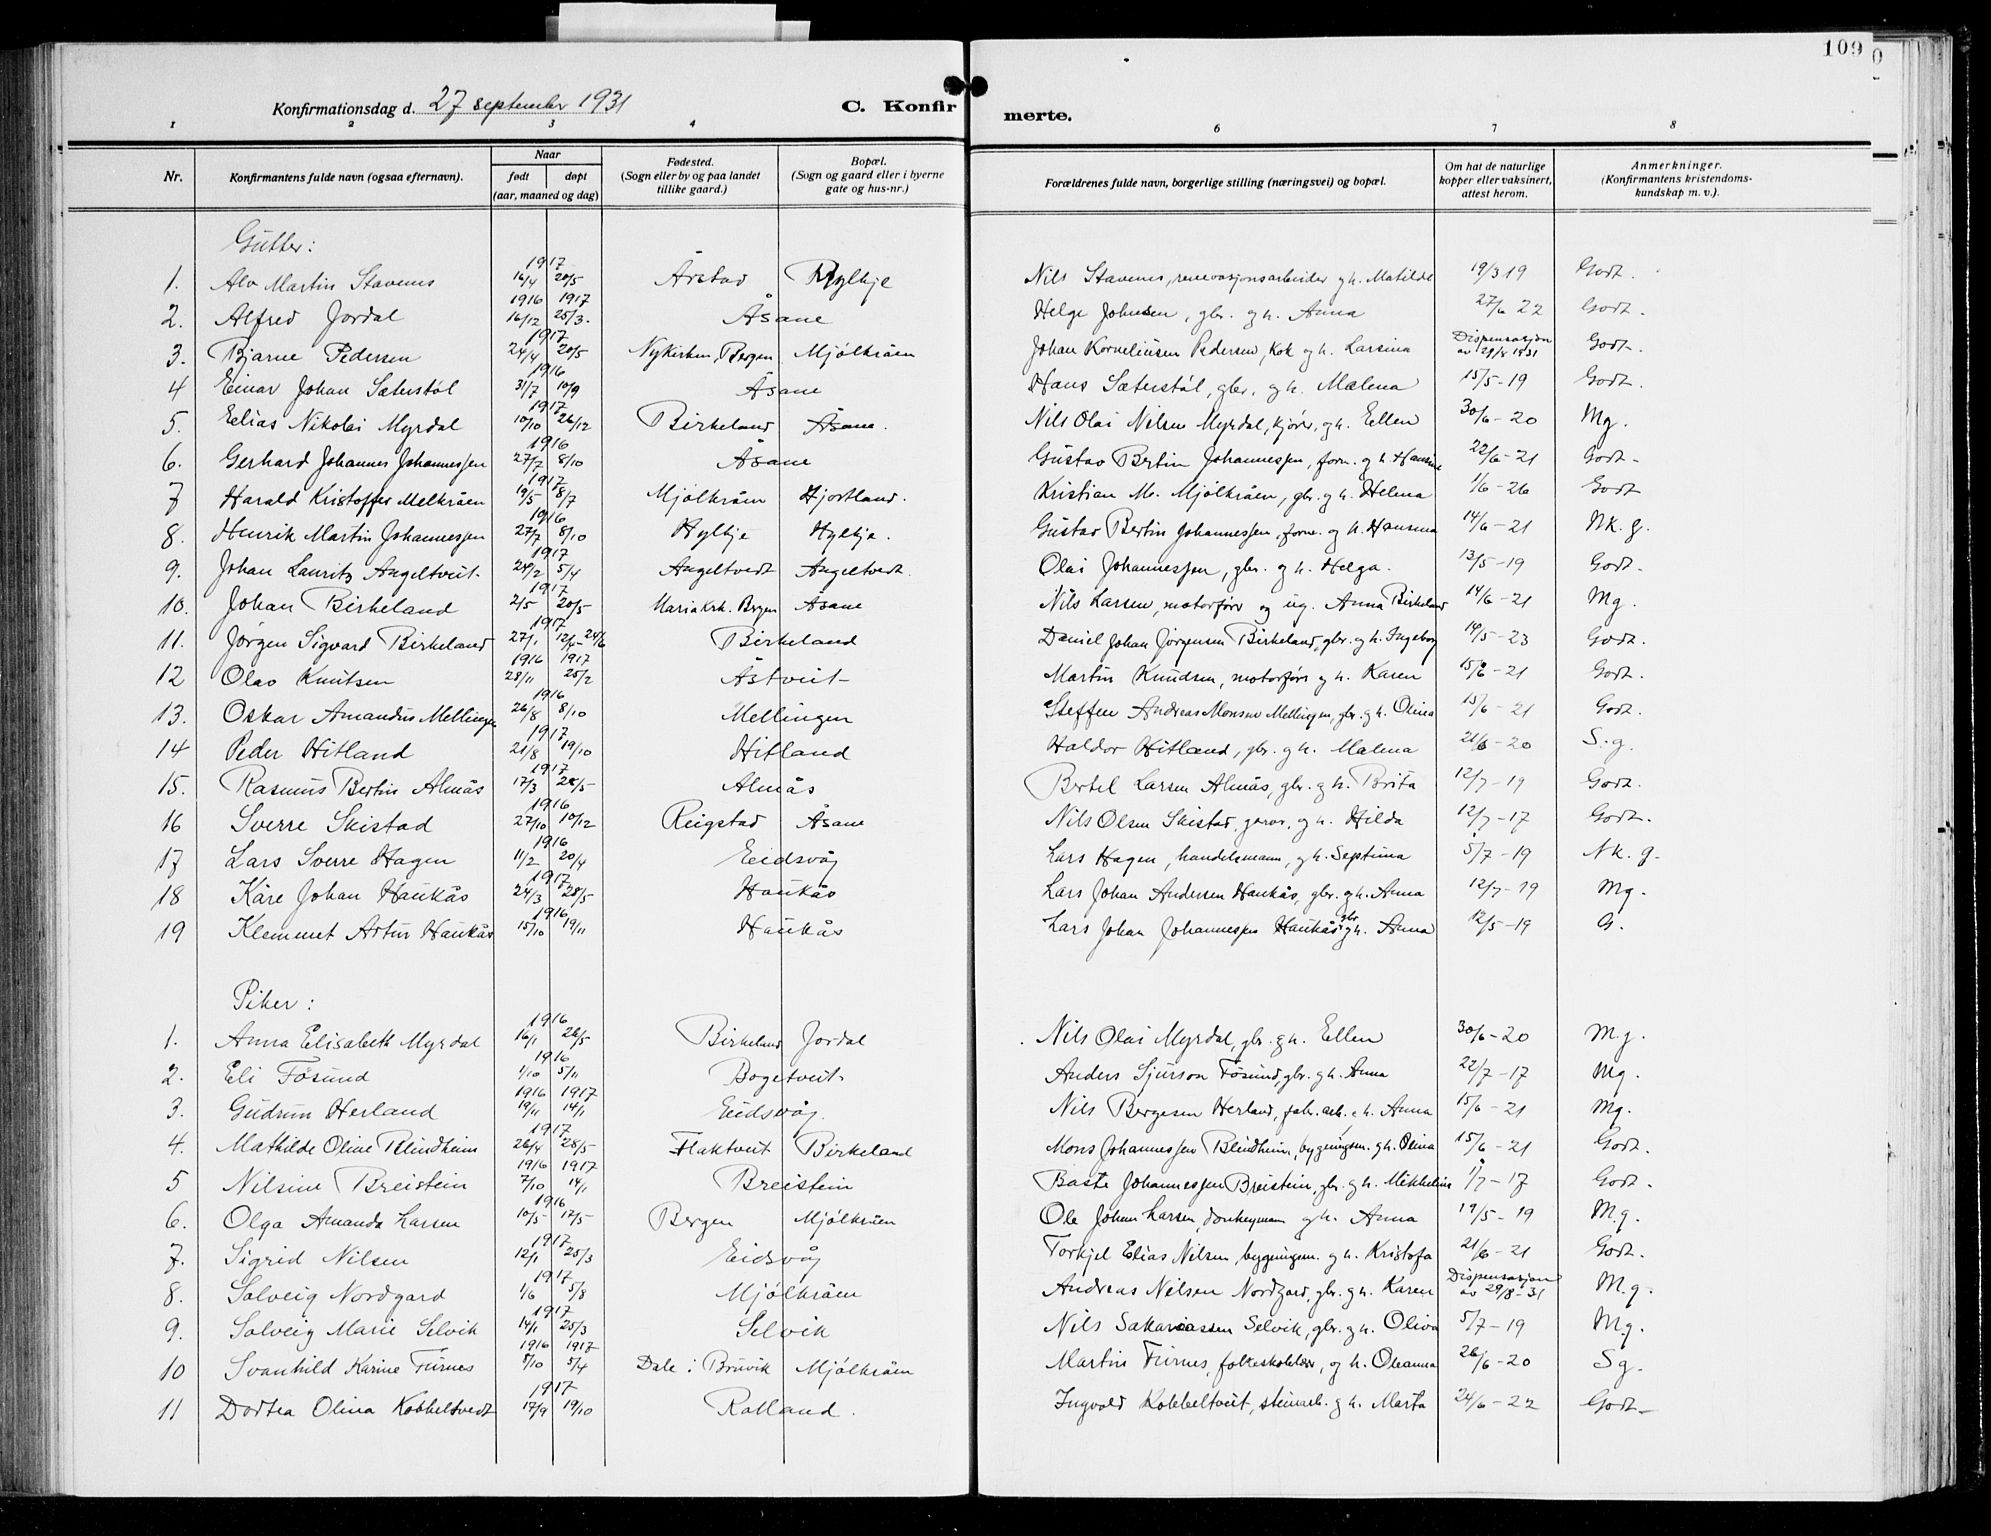 109
Konfirmationsdag d. 27 september 1931 C. Konfirmerte.
1 2 3 4 6 7 8
Nr. Konfirmantens fulde navn (ogsaa efternavn). Naar født døpt (aar, maaned og dag) Fødested. (Sogn eller by og paa landet tillike gaard.) Bopæl. (Sogn og gaard eller i byerne gate og hus-nr.) Forældrenes fulde navn, borgerlige stilling (næringsvei) og bopæl. Om hat de naturlige kopper eller vaksinert, attest herom. Anmerkninger. (Konfirmantens kristendomskundskap m. v.).
Gutter:
1. Alv Martin Stavenes 1917 16/4 20/5 Årstad Hylkje Nils Stavenes, renovasjonsarbeider g h. Matilde 19/3 19 Godt.
2. Alfred Jordal 1916 16/12 1917 25/3. Åsane Helge Johnsen, gbr. g h. Anna 27/6 22 Godt.
3. Bjarne Pedersen 1917 24/4 20/5 Nykirken, Bergen Mjølkråen Johan Korneliusen Pedersen, kok g h. Larsina Dispensasjon av 29/8 1931 Godt.
4 Einar Johan Sæterstøl 1916 31/7 10/9 Åsane Hans Sæterstøl, gbr. g h. Malena 15/5-19 Godt.
5. Elias Nikolai Myrdal 1917 10/10 26/12 Birkeland Åsane. Nils Olai Nilsen Myrdal, kjører, g h. Ellen 30/6-20 Mg.
6. Gerhard Johannes Johannessen 1916 27/7 8/10 Åsane Gustav Bertin Johannessen, form. g h Hansine 22/6-21 Godt-
7 Harald Kristoffer Melkråen 1917 19/5 8/7 Mjølkråen Hjortland. Kristian M. Mjølkråen, gbr. g h. Helena 1/6-26 Godt
8. Henrik Martin Johannessen 1916 27/7 8/10 Hylkje Hylkje. Gustav Bertin Johannessen, form. g h. Hansina 14/6-21 Nk. g.
9. Johan Lauritz Angeltveit. 1917 24/2 5/4 Angeltvedt Angeltvedt. Olai Johannessen, gbr. g h. Helga. 13/5-19 Godt.
10. Johan Birkeland 1917 2/5 20/5 Maria krk. Bergen Åsane Nils Larsen, motorfører og ug. Anna Birkeland 14/6-21 Mg.
11. Jørgen Sigvard Birkeland 1917 27/1 12/4-24/6 Birkeland Daniel Johan Jørgensen Birkeland, gbr. g h. Ingeborg 14/5-23 Godt.
12 Olav Knutsen 1916 28/11 1917 25/2 Åstveit Martin Knudsen, motorfører g h. Karen 15/6-21 Godt.
13. Oskar Amandus Mellingen 1916 26/8 8/10 Mellingen Steffen Andreas Monsen Mellingen, gbr. g h. Olina 15/6-21 Godt.
14 Peder Hitland 1917 21/8 19/10 Hitland Haldor Hitland, gbr. g h. Malena 21/6-20 S.g.
15. Rasmus Bertin Almås 1917 17/3 28/5- Almås Bertel Larsen Almås, gbr. g h. Brita 12/7-19 Godt.
16 Sverre Skistad 1916 27/10 10/12 Reigstad Åsane Nils Olsen Skistad, garver, g h. Hilda 12/7-17 Godt.
17 Lars Sverre Hagen 1916 11/2 20/4 Eidsvåg Lars Hagen, handelsmann, g h. Septima 5/7-19 Nk. g.
18 Kåre Johan Haukås 1917 24/3 28/5 Haukås Lars Johan Andersen Haukås, gbr. g h. Anna 12/7-19 Mg.
19 Klemmet Artur Haukås 1916 15/10 19/11 Haukås Lars Johan Johannessen Haukås gbr. g h. Anna 12/5-19 G.
Piker:
1. Anna Elisabeth Myrdal 1916 16/1 26/5 Birkeland Jordal Nils Olai Myrdal, gbr. g h. Ellen 30/6-20 M.g.
2. Eli Føsund 1916 1/10 5/11 Bogetveit Anders Sjurson Føsund, gbr. g h. Anna 22/7-17 Mg.
3. Gudrun Herland 1916 19/11 1917 14/1 Eidsvåg. Nils Bergesen Herland, fabr. arb. g h. Anna 15/6-21 Mg.
4. Mathilde Oline Blindheim 1917 26/4 28/5 Flaktveit Birkeland Mons Johannessen Blindheim, bygningsm. g h. Olina 15/6-21 Godt.
5 Nilsine Breistein 1916 7/10 1917 14/1 Breistein Baste Johannessen Breistein, gbr. g h. Mikkeline 1/7-17 Godt.
6. Olga Amanda Larsen 1916 10/5- 17/5- Bergen Mjølkråen Ole Johan Larsen, donkeymann g h. Anna 19/5-19 M.g.
7. Sigrid Nilsen 1917 12/1 25/3 Eidsvåg Torkjel Elias Nilsen, bygningsm. g h. Kristofa 21/6-21 Godt.
8. Solveig Nordgard 1917 1/6 5/8 Mjølkråen Andreas Nilsen Nordgard, gbr. g h. Karen Dispensasjon av 29/8-31 M.g.
9. Solveig Marie Selvik 1917 14/1 25/3 Selvik Nils Sakariassen Selvik, gbr. g h. Oliva 5/7-19 Mg.
10 Svanhild Karine Furnes 1916 5/10 1917 5/4 Dale i Bruvik Mjølkråen Martin Furnes, folkeskolelærer, g h. Oleanna 26/6-20 Sg.
11 Dortea Olina Kobbeltvedt 1917 17/9 19/10 Rolland. Ingvald Kobbeltveit, steinarb. g h. Marta 24/6-22 Godt